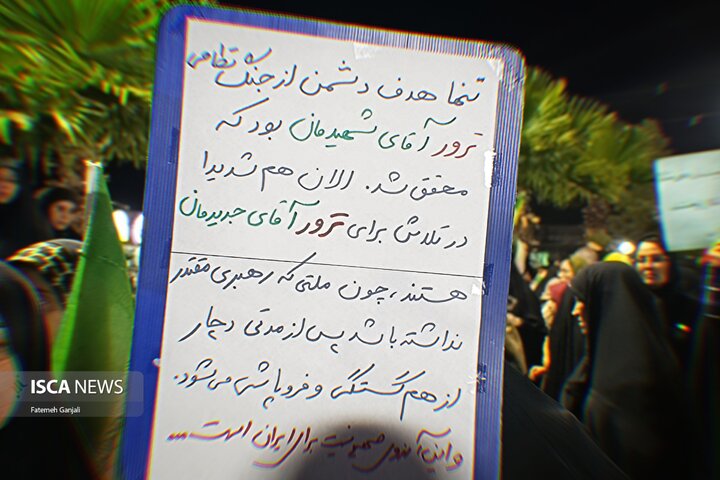 تنها هدف دشمن از جنگ نظامی
ترور آقای شهیدمان بود که
محقق شد. الان هم شدیدا
در تلاش برای ترور آقای جدیدمان
هستند، چون ملتی که رهبری مقتدر
نداشته باشد پس از مدتی دچار
از هم گسستگی و فروپاشی می‌شود.
و این آرزوی صهیونیست برای ایران است...
ISCA NEWS
Fatemeh Ganjali